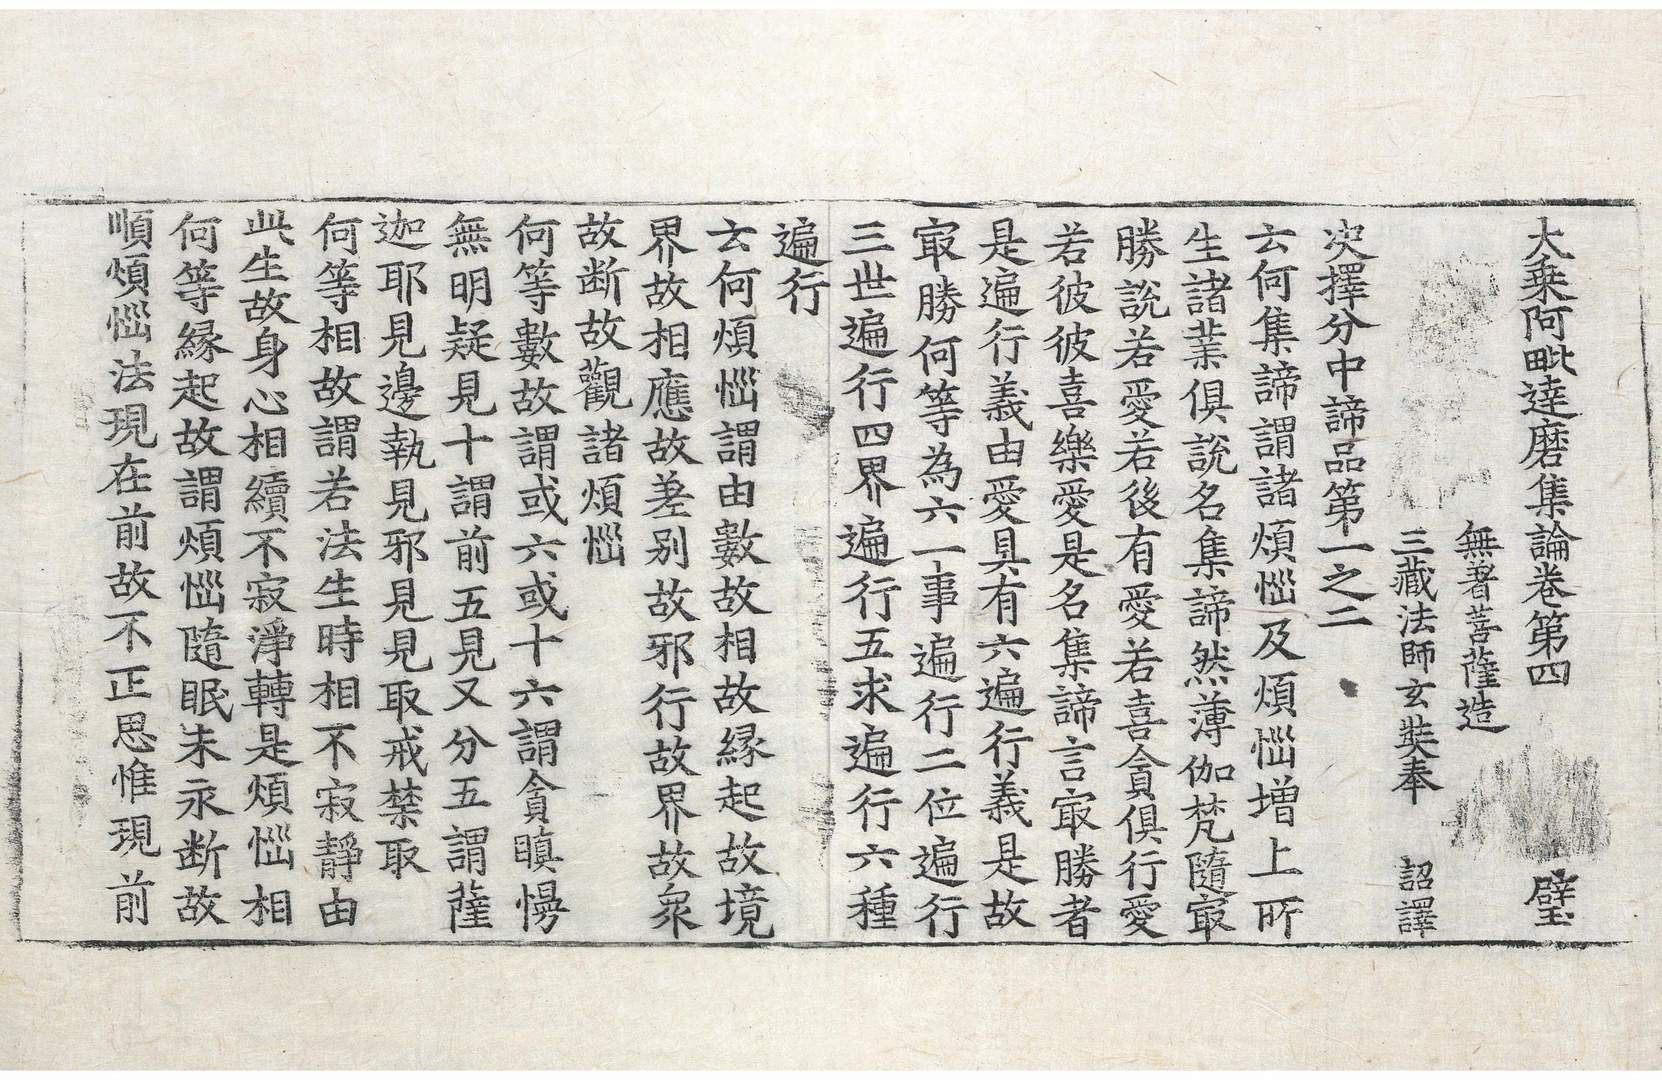 大乘阿毗達磨集論卷第四 璧
無著菩薩造
三藏法師玄奘奉 詔譯
決擇分中諦品第一之二
云何集諦謂諸煩惱及煩惱增上所
生諸業俱說名集諦然薄伽梵隨冣
勝說若愛若後有愛若喜貪俱行愛
若彼彼喜樂愛是名集諦言冣勝者
是遍行義由愛具有六遍行義是故
冣勝何等為六一事遍行二位遍行
三世遍行四界遍行五求遍行六種
遍行
云何煩惱謂由數故相故緣起故境
界故相應故差別故邪行故界故衆
故断故觀諸煩惱
何等數故謂或六或十六謂貪瞋慢
無明疑見十謂前五見又分五謂薩
迦耶見邊執見邪見見取戒禁取
何等相故謂若法生時相不寂靜由
此生故身心相續不寂淨轉是煩惱相
何等緣起故謂煩惱隨眠未永断故
順煩惱法現在前故不正思惟現前